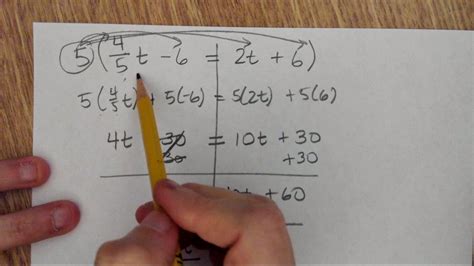 5(4/5 t - 6 = 2t + 6)
5(4/5 t) + 5(-6) = 5(2t) + 5(6)
4t - 30 = 10t + 30
30 +30
+ 60